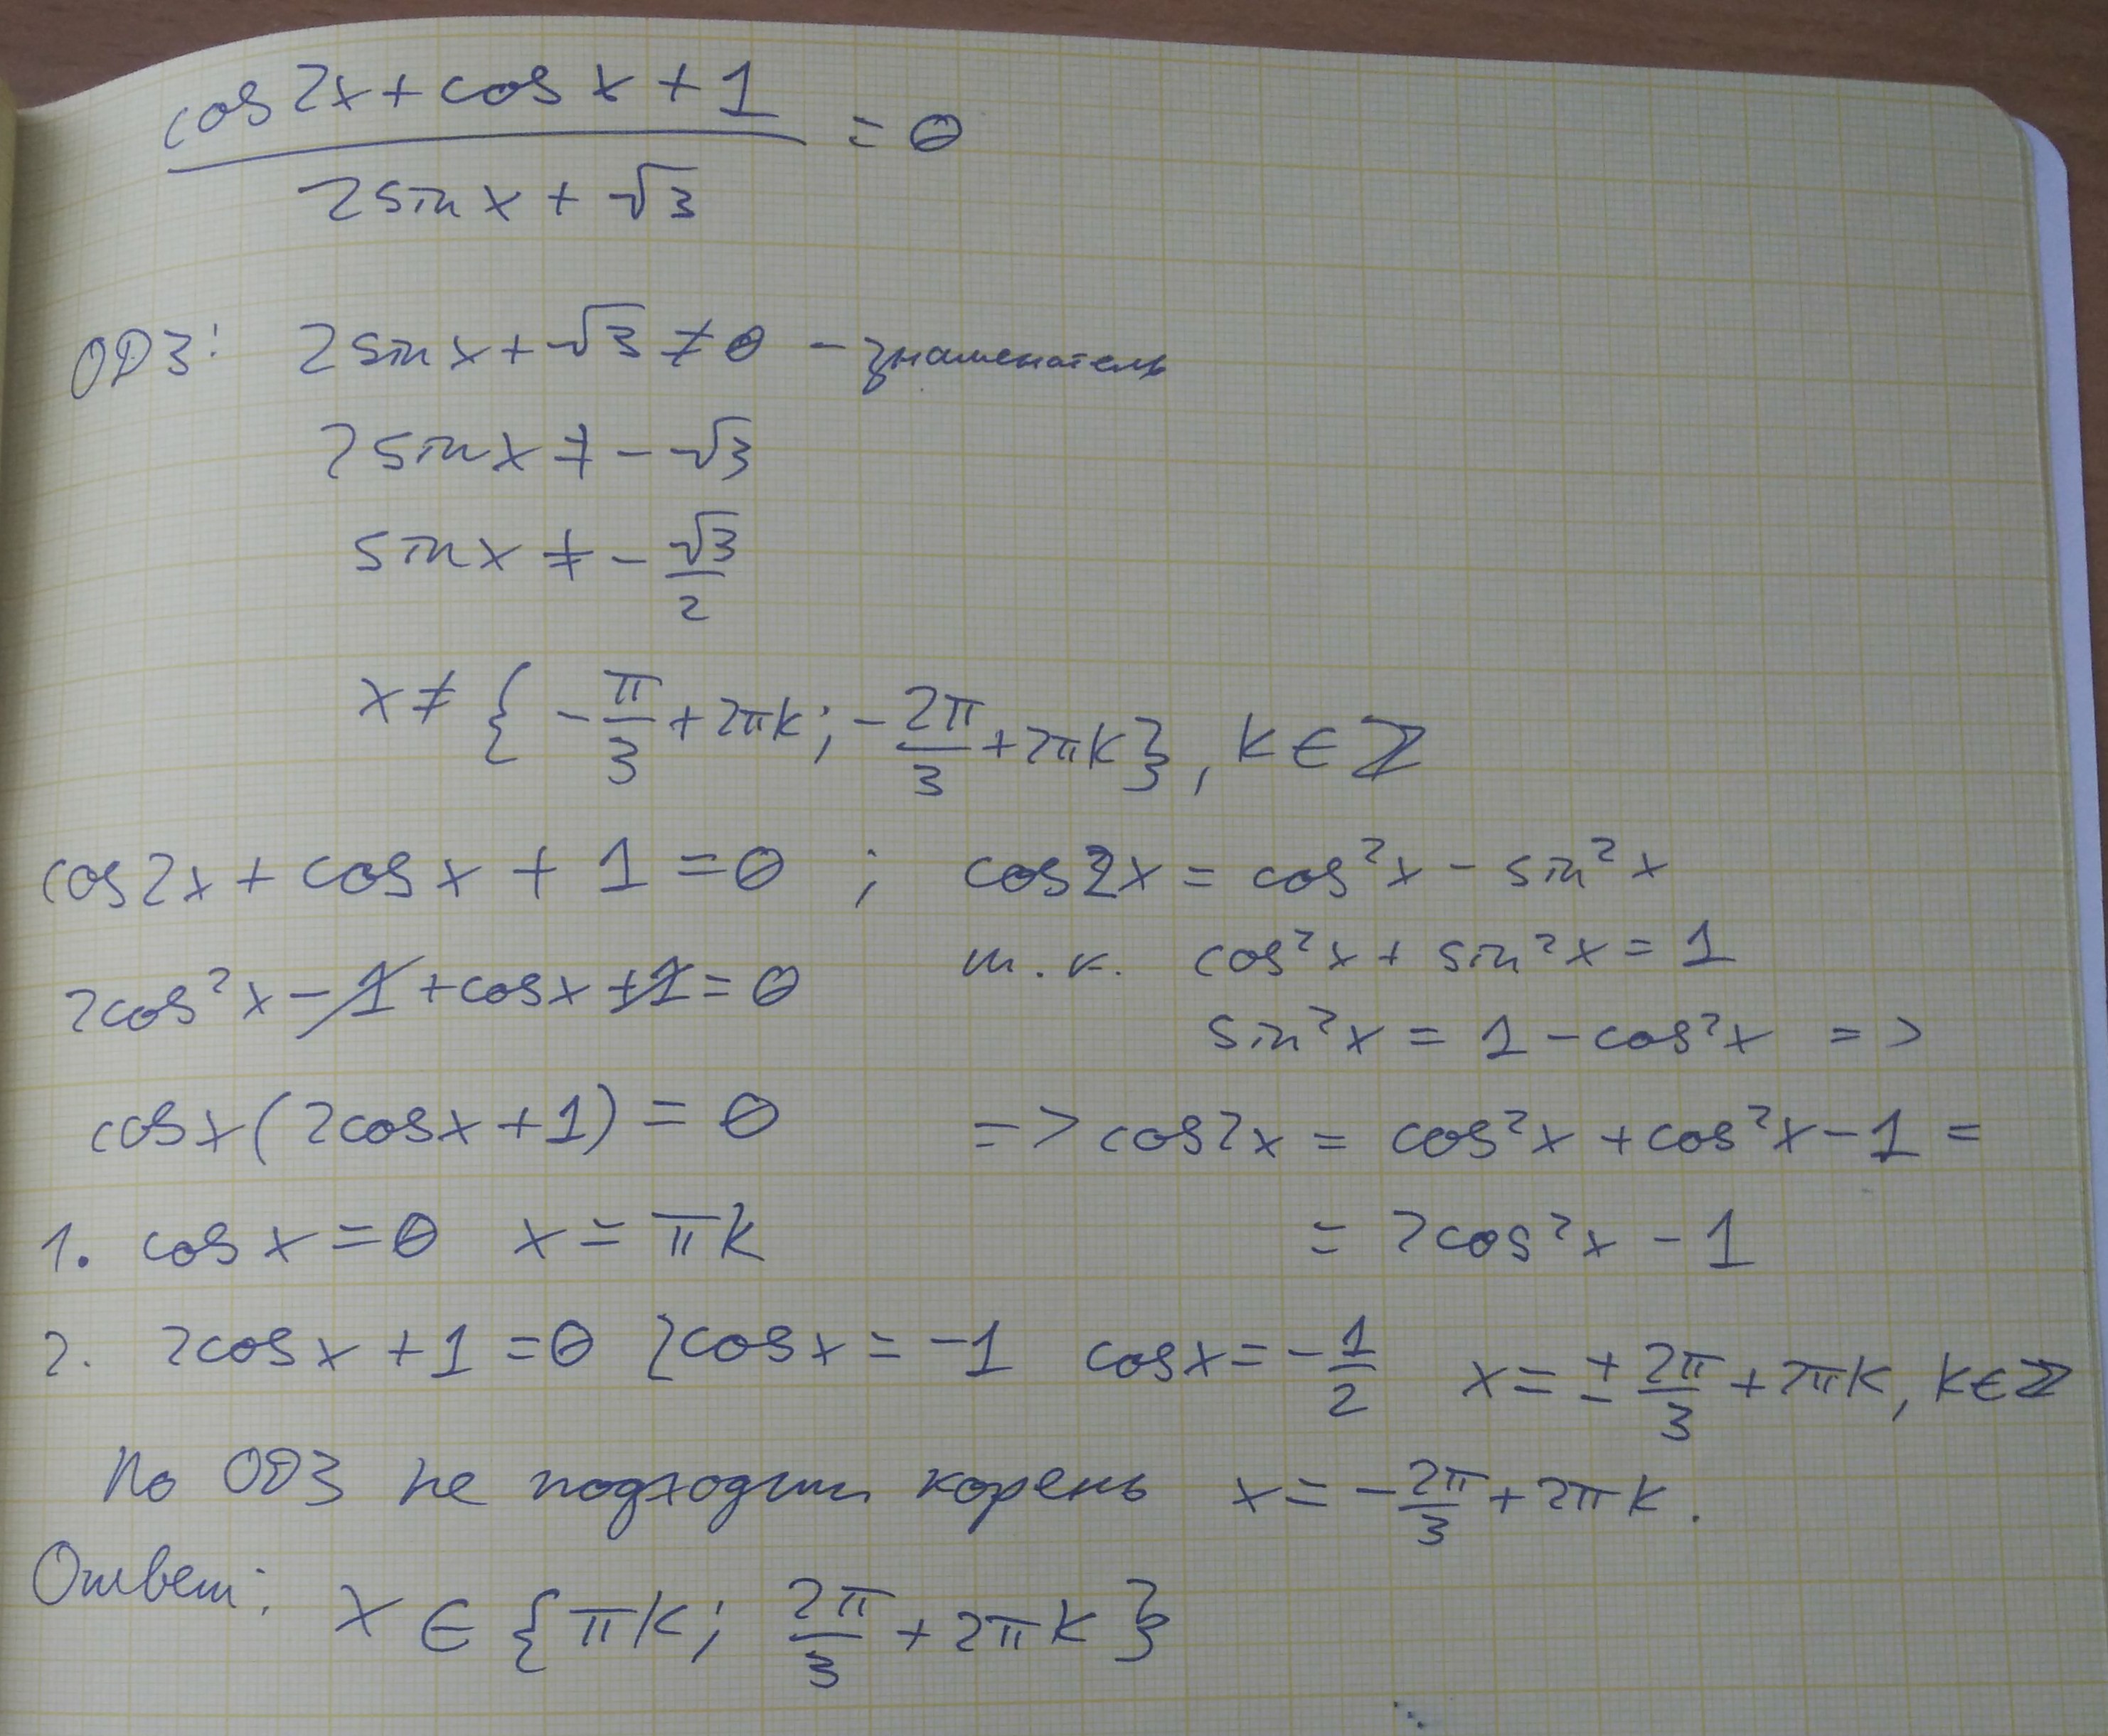 cos2x + cos x + 1
———————— = 0
2 sin x + √3
ОДЗ: 2 sin x + √3 ≠ 0 - знаменатель
2 sin x ≠ - √3
sin x ≠ - √3/2
x ≠ { - π/3 + 2πk; - 2π/3 + 2πk }, k ∈ ℤ
cos2x + cos x + 1 = 0 ; cos2x = cos²x - sin²x
2cos²x - 1 + cos x + 1 = 0 т.к. cos²x + sin²x = 1
sin²x = 1 - cos²x =>
cos x (2cos x + 1) = 0 => cos2x = cos²x + cos²x - 1 =
1. cos x = 0 x = πk = 2cos²x - 1
2. 2cos x + 1 = 0 2cos x = -1 cos x = - 1/2 x = ± 2π/3 + 2πk, k ∈ ℤ
По ОДЗ не подходит корень x = - 2π/3 + 2πk.
Ответ: x ∈ { πk; 2π/3 + 2πk }